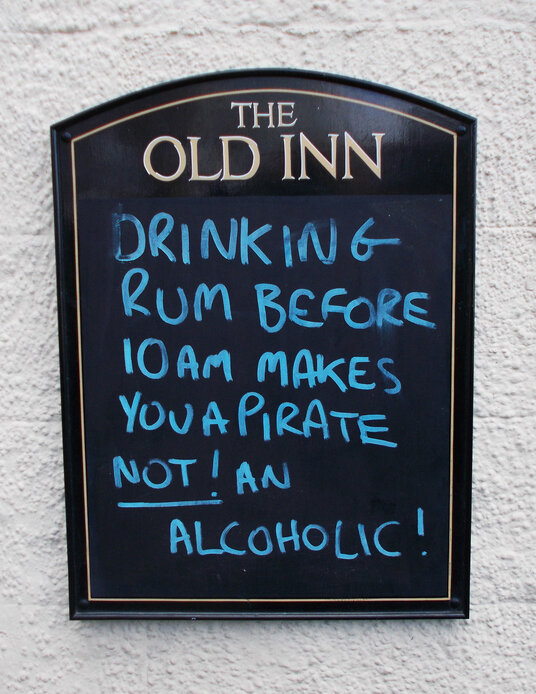 THE
OLD INN
DRINKING
RUM BEFORE
10AM MAKES
YOU A PIRATE
NOT! AN
ALCOHOLIC!